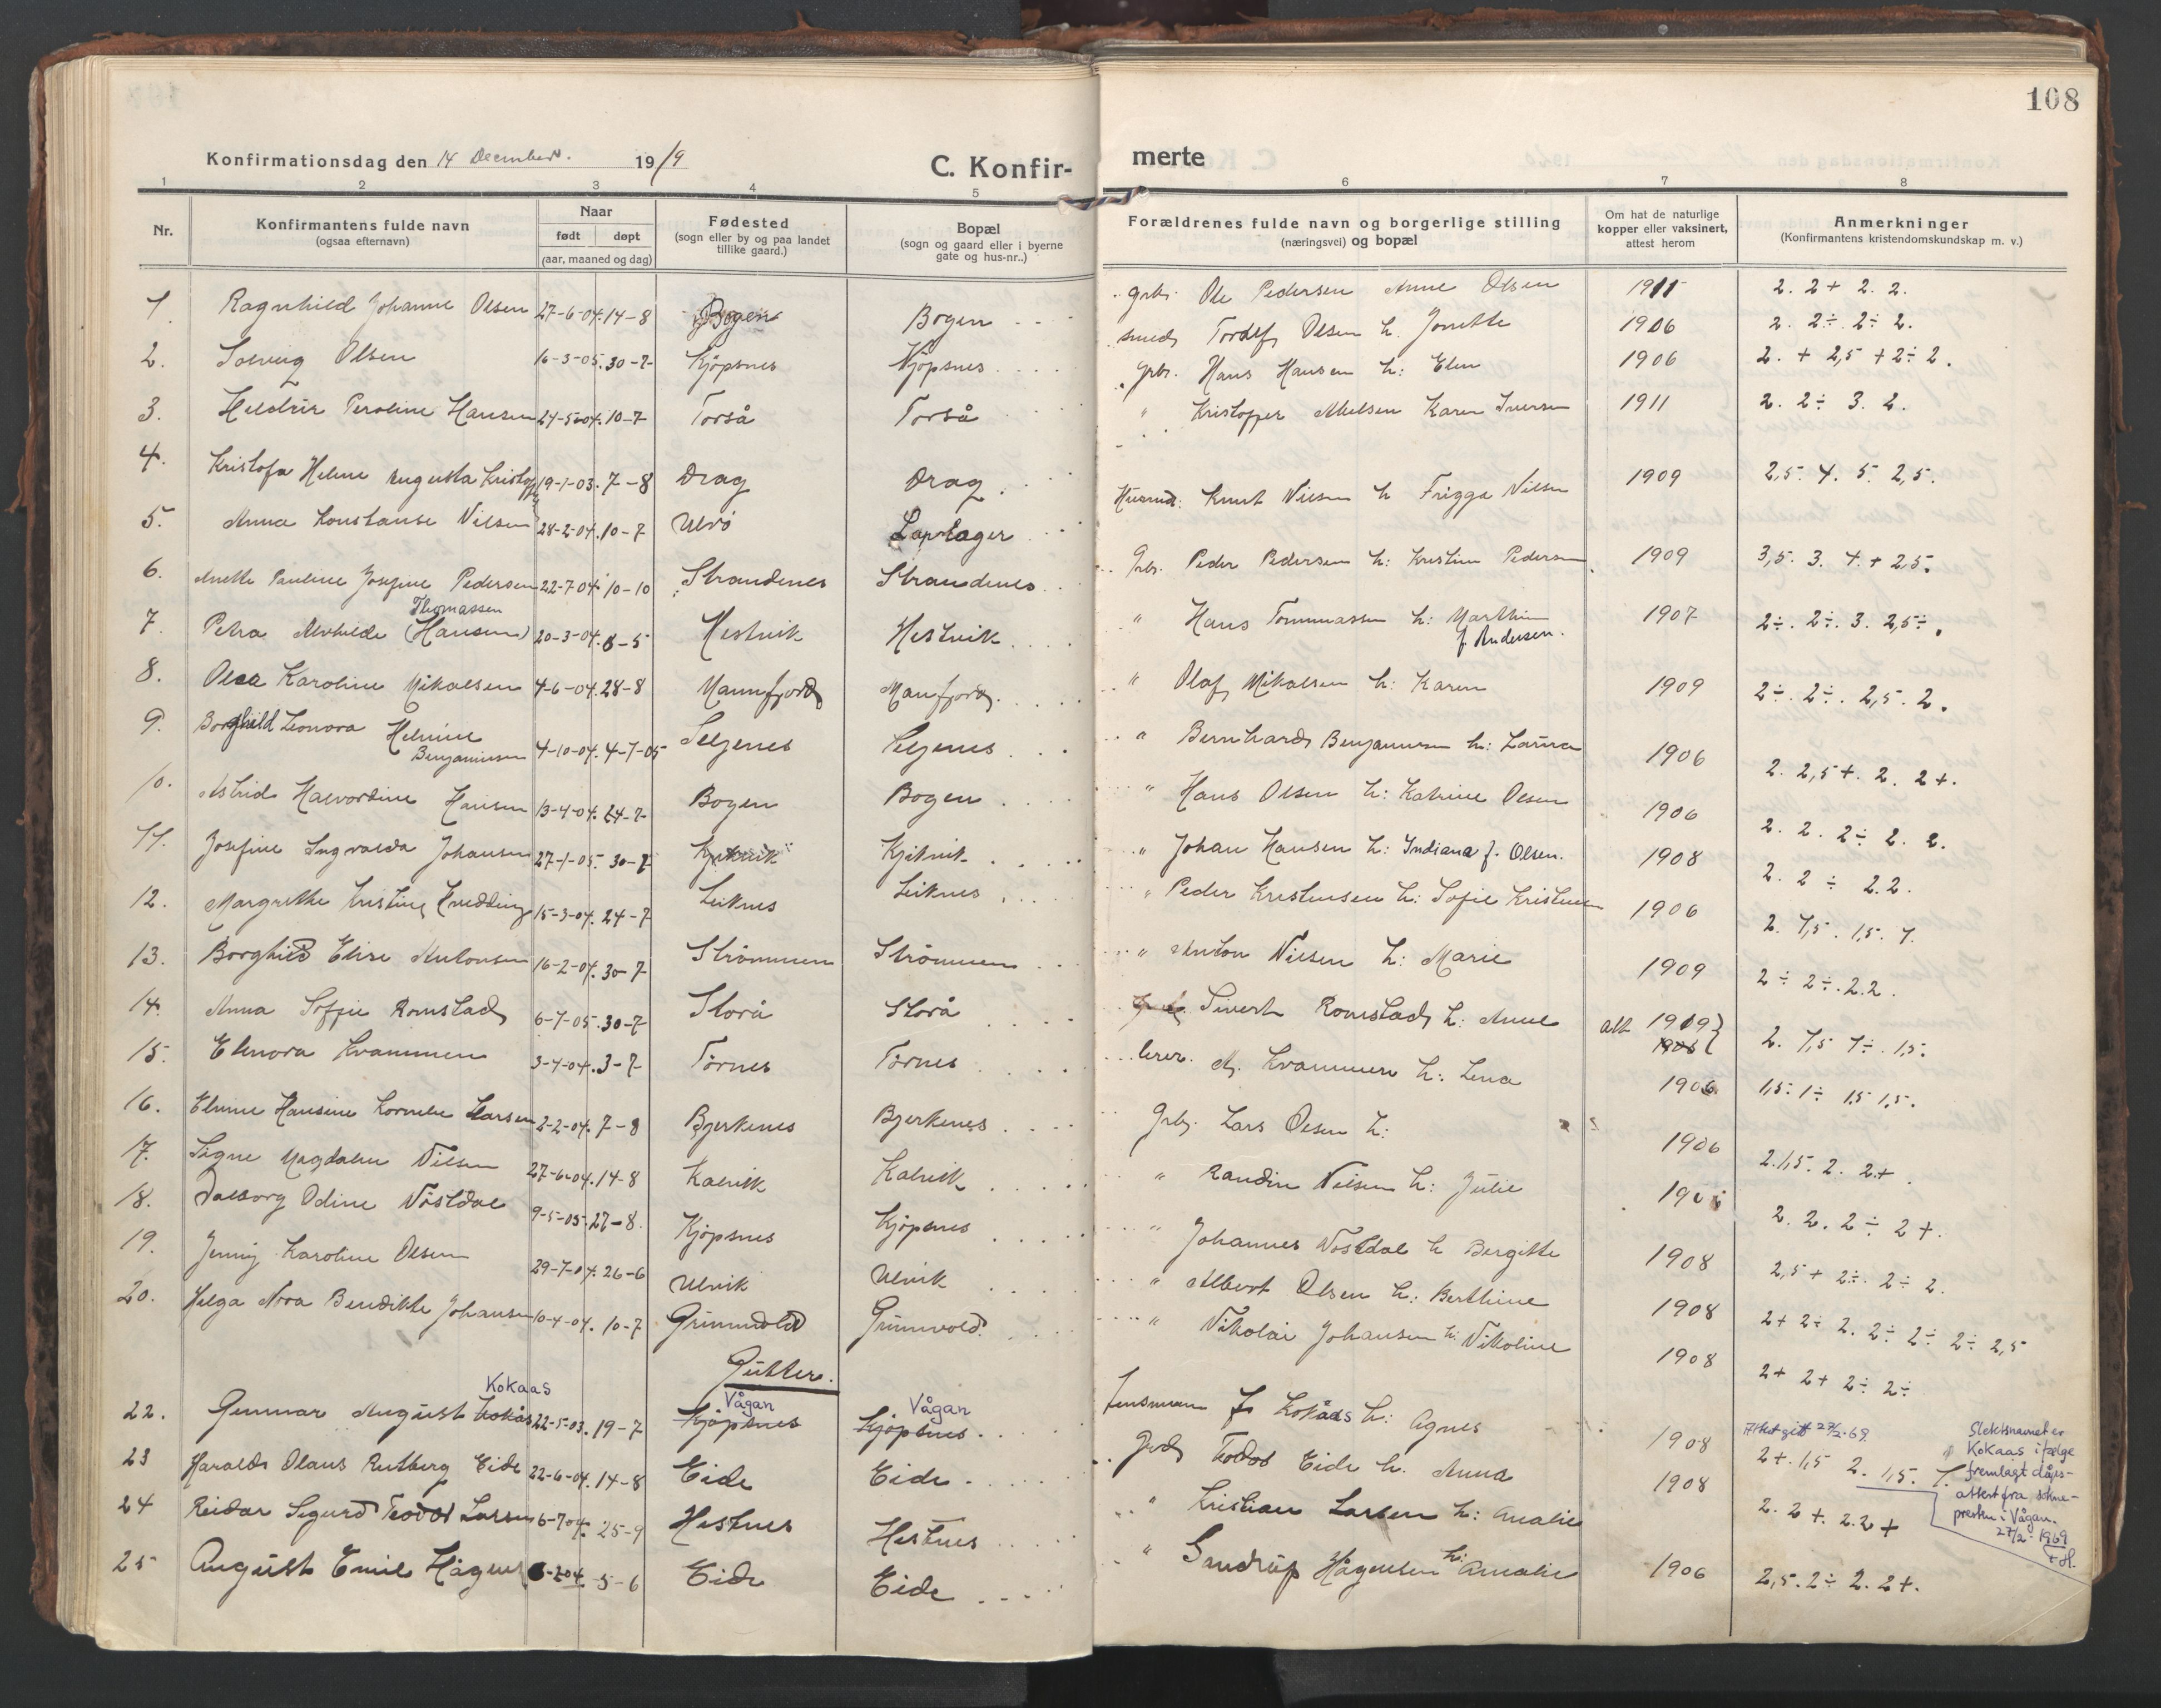 108
Konfirmationsdag den 14 December. 19 19
C. Konfir-
merte
1 2 3 4 5 6 7 8
Nr.
Konfirmantens fulde navn
(ogsaa efternavn)
Naar
født døpt
(aar, maaned og dag)
Fødested
(sogn eller by og paa landet
tillike gaard.)
Bopæl
(sogn og gaard eller i byerne
gate og hus-nr..)
Forældrenes fulde navn og borgerlige stilling
(næringsvei) og bopæl
Om hat de naturlige
kopper eller vaksinert,
attest herom
Anmerkninger
(Konfirmantens kristendomskundskap m. v.)
1. Ragnhild Johanne Olsen 27-6-04. 14-8 Bogen Bogen grbr. Ole Pedersen Anne Olsen 1911 2. 2+ 2. 2.
2. Solveig Olsen 16-3-05. 30-7 Kjöpsnes Kjöpsnes smed Tordlf Olsen h. Jonette 1906 2. 2÷ 2÷ 2.
3. Heldrir Peroline Hansen 24-5-04. 10-7 Torså Torså grbr. Hans Hansen h: Elen 1906 2. + 2,5 + 2÷ 2.
4. Kristofa Helene Augusta 19-1-03. 7-8 Drag Drag " Kristoffer Karen Iversen 1911 2. 2÷ 3. 2.
5. Anna Konstanse Nilsen 28-2-04. 10-7 Ulvö Lapleger Knut Nilsen h Frigga Nilsen 1909 2,5. 4. 5. 2,5.
6. Anette Pauline Josefine Pedersen 22-7-04. 10-10 Strandenes Strandenes Grbr. Peder Pedersen h: Kristine Pedersen 1909 3,5. 3. 4. + 2,5.
Thomassen
7. Petra Alvhilde (Hansen) 20-3-04. 8-5 Hestvik Hestvik " Hans Tommassen h: Marthine 1907 2÷. 2÷. 3. 2,5÷.
f. Andersen.
8. Olea Karoline Mikalsen 4-6-04. 28-8 Mannfjord Manfjord " Olaf Mikalsen h: Karen 1909 2÷. 2÷. 2,5. 2.
9. Borghild Leonora Helmine
Benjaminsen 4-10-04. 4-7-05 Seljenes Seljenes " Bernhard Benjaminsen h: Laura 1906 2. 2,5+. 2. 2+.
10. Astrid Halvordine Hansen 13-4-04. 24-7 Bogen Bogen " Hans Olsen h: Katrine Olsen 1906 2. 2. 2÷ 2. 2.
11. Josefine Ingvalda Johansen 27-1-05. 30-7 Kjikvik Kjikvik " Johan Hansen h: Indiana f. Olsen. 1908 2. 2 ÷ 2.2.
12. Margrethe Kristine 15-3-04. 24-7 Leiknes Leiknes " Peder Kristensen h: Sofie Kristensen 1906 2. 1,5. 1,5. 1.
13. Borghild Elise Antonsen 16-2-04. 30-7 Strömmen Strömmen " Anton Nilsen h: Marie 1909 2÷ 2÷. 2.2.
14. Anna Soffie Romstad 6-7-05. 30-7 Storå Storå Sivert Romstad h: Anne att 1919 2. 1,5 1÷. 1,5.
1906
15. Elenora Kvammen 3-4-04. 3-7 Törnes Törnes lærer. M. Kvammen h: Lena 1906 1,5. 1÷ 1,5 1,5.
16. Elmine Hansine Kornelie Larsen 2-2-04. 7-8 Bjerkenes Bjerkenes Grbr. Lars Olsen h: 1906 2.1,5. 2. 2+.
17. Signe Magdalen Nilsen 27-6-04. 14-8 Kalvik Kalvik " Randin Nilsen h: Julie 2. 2. 2÷ 2+.
18. Dalborg Odine Vöstdal 9-5-05. 27-8. Kjöpsnes Kjöpsnes " Johannes Vöstdal h Bergitte 1908 2,5+ 2÷. 2÷ 2.
19. Jenny Karoline Olsen 29-7-04. 26-6 Ulvik Ulvik " Albert Olsen h: Berthine 1908 2+ 2÷ 2. 2÷ 2÷ 2÷ 2,5
20. Helga Nora Bendikte Johansen 10-4-04. 10-7 Grunnvold Grunnvold. " Nikolai Johansen h: Nikoline 1908 2+ 2+ 2÷ 2÷
Gutter.
Kokaas Vågan Vågan
22. Gunnar August Kokås 22-5-03. 19-7 Kjöpsnes Kjöpsnes. Lensmann Kokaas h: Agnes 1908 2+. 1,5 2. 1,5. 1.
Attest git 27/2-69.
Slektsnavnet er
Kokaas ifølge
fremlagt dåps-
attest fra sokne-
presten i Vågan.
27/2-1969
23 Harald Olaus Rutberg Eide 22-6-04. 14-8 Eide Eide Teodor Eide h. Anna 1908 2. 2+. 2.2+
24 Reidar Sigurd Teodor Larsen 6-7-04. 25-9 Hestnes Hestnes " Kristian Larsen h: Amalie
25 August Emil Hågensen 5-6 Eide Eide " Sandrup Hågensen h: Amalie 1906 2,5. 2÷ 2. 2+.